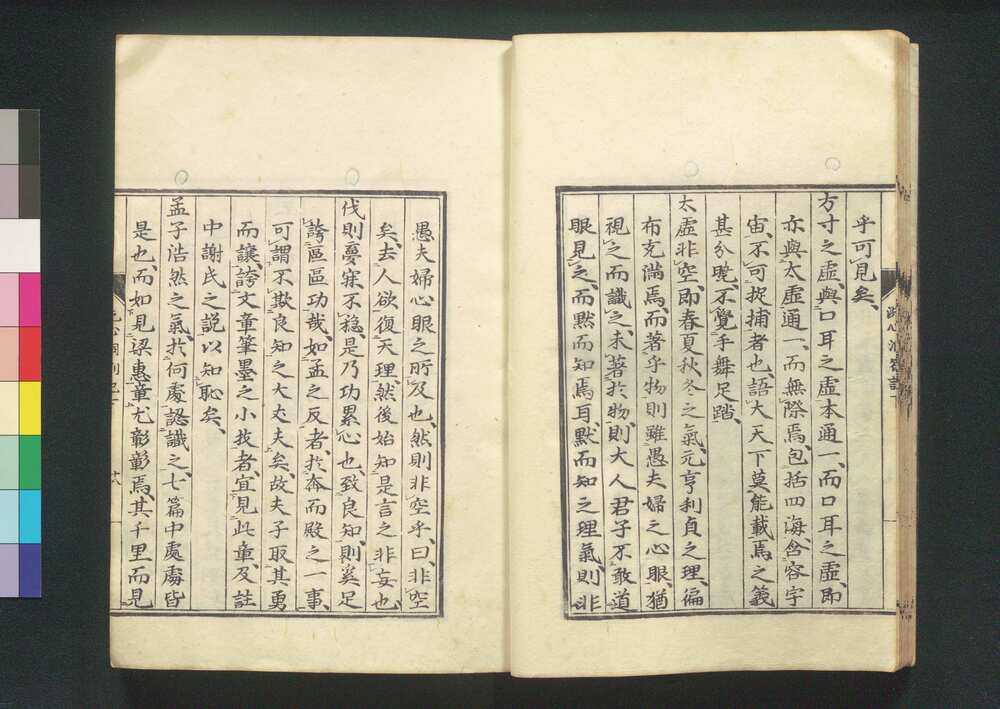 乎可見矣、
方寸之虛、與口耳之虛本通一、而口耳之虛、即
亦與太虛通一、而無際焉、包括四海、含容宇
宙、不可捉捕者也、語大天下莫能載焉之義
甚分曉、不覺手舞足蹈、
太虛非空、即春夏秋冬之氣、元亨利貞之理、徧
布充滿焉、而著乎物則雖愚夫婦之心眼、猶
視之而識之、未著於物、則大人君子不敢道
眼見之、而默而知焉耳、默而知之理氣、則非
愚夫婦心眼之所及也、然則非空乎、曰、非空
矣、去人欲復天理、然後始知是言之非妄也、
伐則憂寐不穩、是乃功累心也、致良知、則奚足
誇區區功哉、如孟之反者、於奔而殿之一事、
可謂不欺良知之大丈夫矣、故夫子取其勇
而讓、誇文章筆墨之小技者、宜見此章、及註
中謝氏之說以知恥矣、
孟子浩然之氣、於何處認識之、七篇中處處皆
是也、而如見梁惠章尤彰彰焉、其千里而見
洗心洞劄記